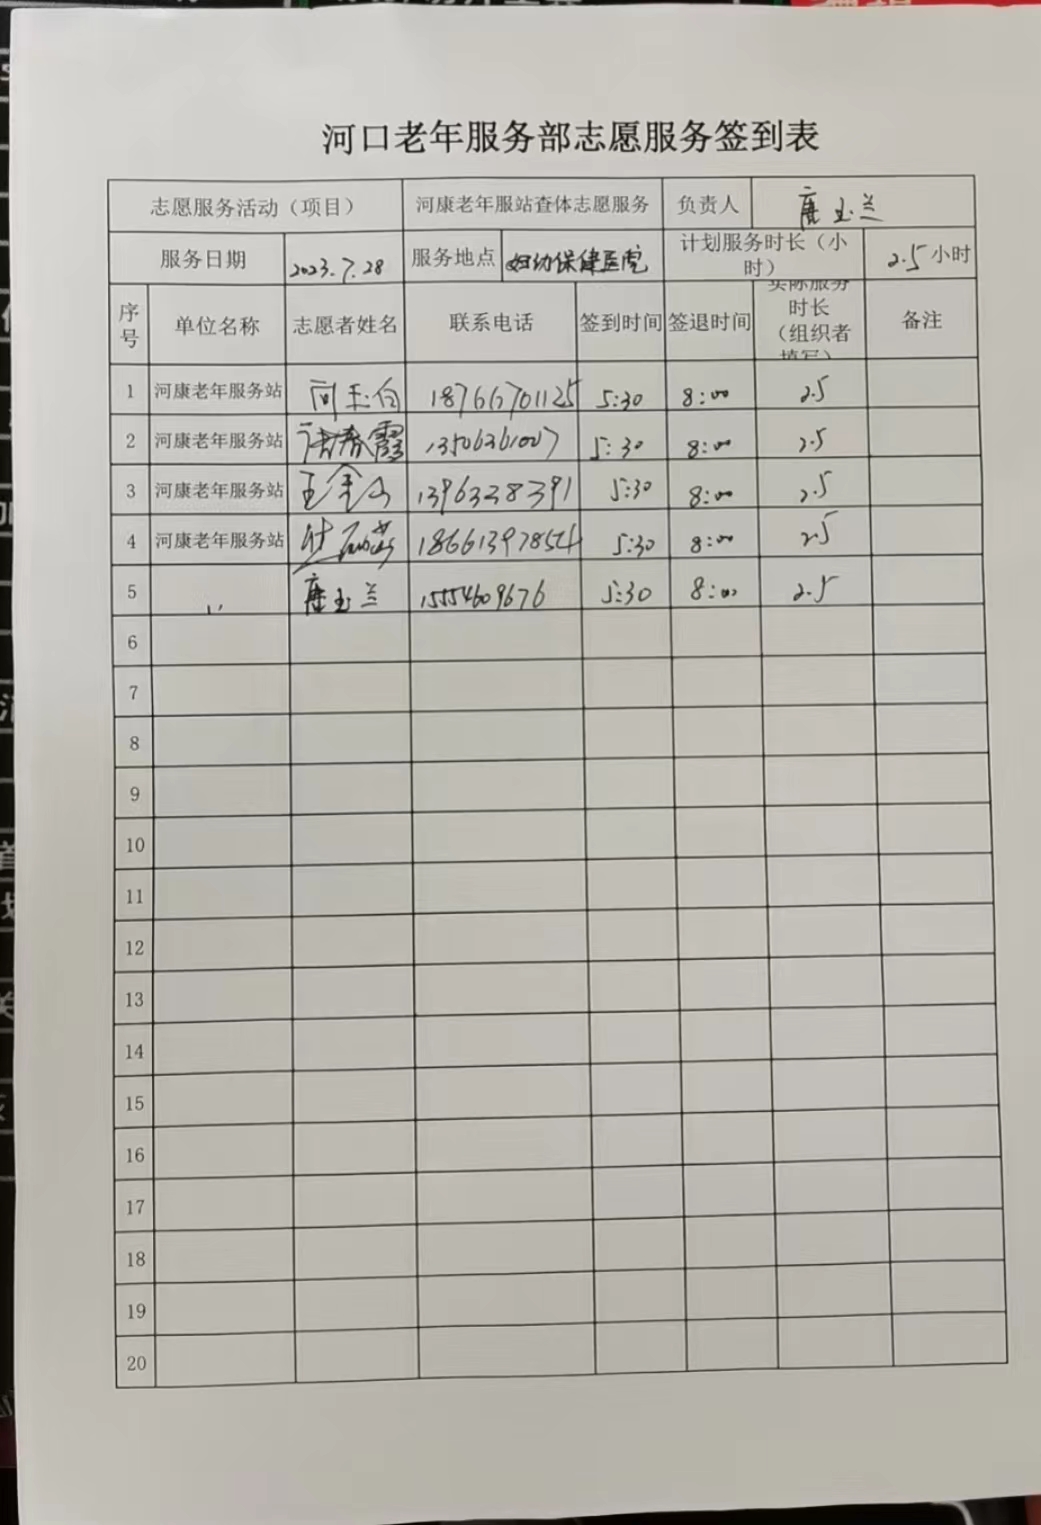 河口老年服务部志愿服务签到表
志愿服务活动（项目） 河康老年服站查体志愿服务 负责人 唐玉兰
服务日期 2023.7.28 服务地点 妇幼保健医院 计划服务时长（小时） 2.5小时
序号 单位名称 志愿者姓名 联系电话 签到时间 签退时间 实际服务时长（组织者填写） 备注
1 河康老年服务站 18766701125 5:30 8:00 2.5
2 河康老年服务站 春霞 13506361007 5:30 8:00 2.5
3 河康老年服务站 13963283391 5:30 8:00 2.5
4 河康老年服务站 18661397854 5:30 8:00 2.5
5 〃 唐玉兰 15554609676 5:30 8:00 2.5
6
7
8
9
10
11
12
13
14
15
16
17
18
19
20